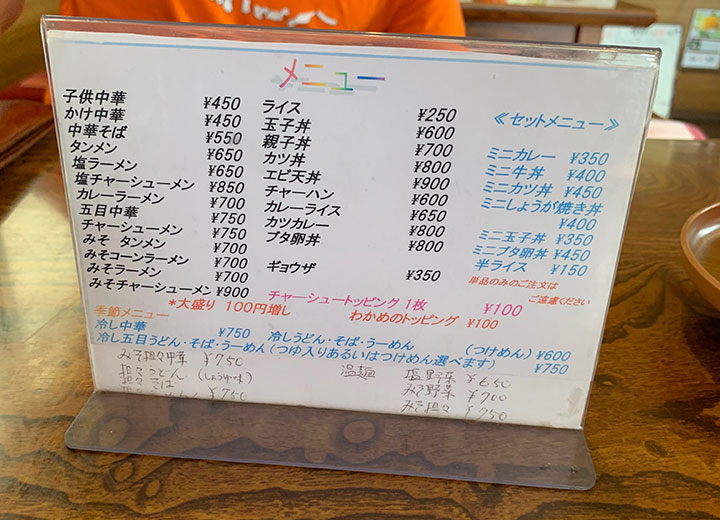 メニュー
子供中華 ¥450
かけ中華 ¥450
中華そば ¥550
タンメン ¥650
塩ラーメン ¥650
塩チャーシューメン ¥850
カレーラーメン ¥700
五目中華 ¥750
チャーシューメン ¥750
みそ タンメン ¥700
みそコーンラーメン ¥700
みそラーメン ¥700
みそチャーシューメン ¥900
ライス ¥250
玉子丼 ¥600
親子丼 ¥700
カツ丼 ¥800
エビ天丼 ¥900
チャーハン ¥600
カレーライス ¥650
カツカレー ¥800
ブタ卵丼 ¥800
ギョウザ ¥350
≪セットメニュー≫
ミニカレー ¥350
ミニ牛丼 ¥400
ミニカツ丼 ¥450
ミニしょうが焼き丼
¥400
ミニ玉子丼 ¥350
ミニブタ卵 ¥450
半ライス ¥150
単品のみのご注文は
ご遠慮ください
チャーシュートッピング 1枚 ¥100
*大盛り 100円増し わかめのトッピング ¥100
季節メニュー
冷し中華 ¥750 冷しうどん・そば・らーめん (つけめん) ¥600
冷し五目うどん・そば・らーめん (つゆ入りあるいはつけめん選べます) ¥750
みそ担々中華 ¥750
担々うどん (しょうゆ味)
担々そば
¥750
温麺 塩野菜 ¥650
みそ野菜 ¥700
みそ担々 ¥750